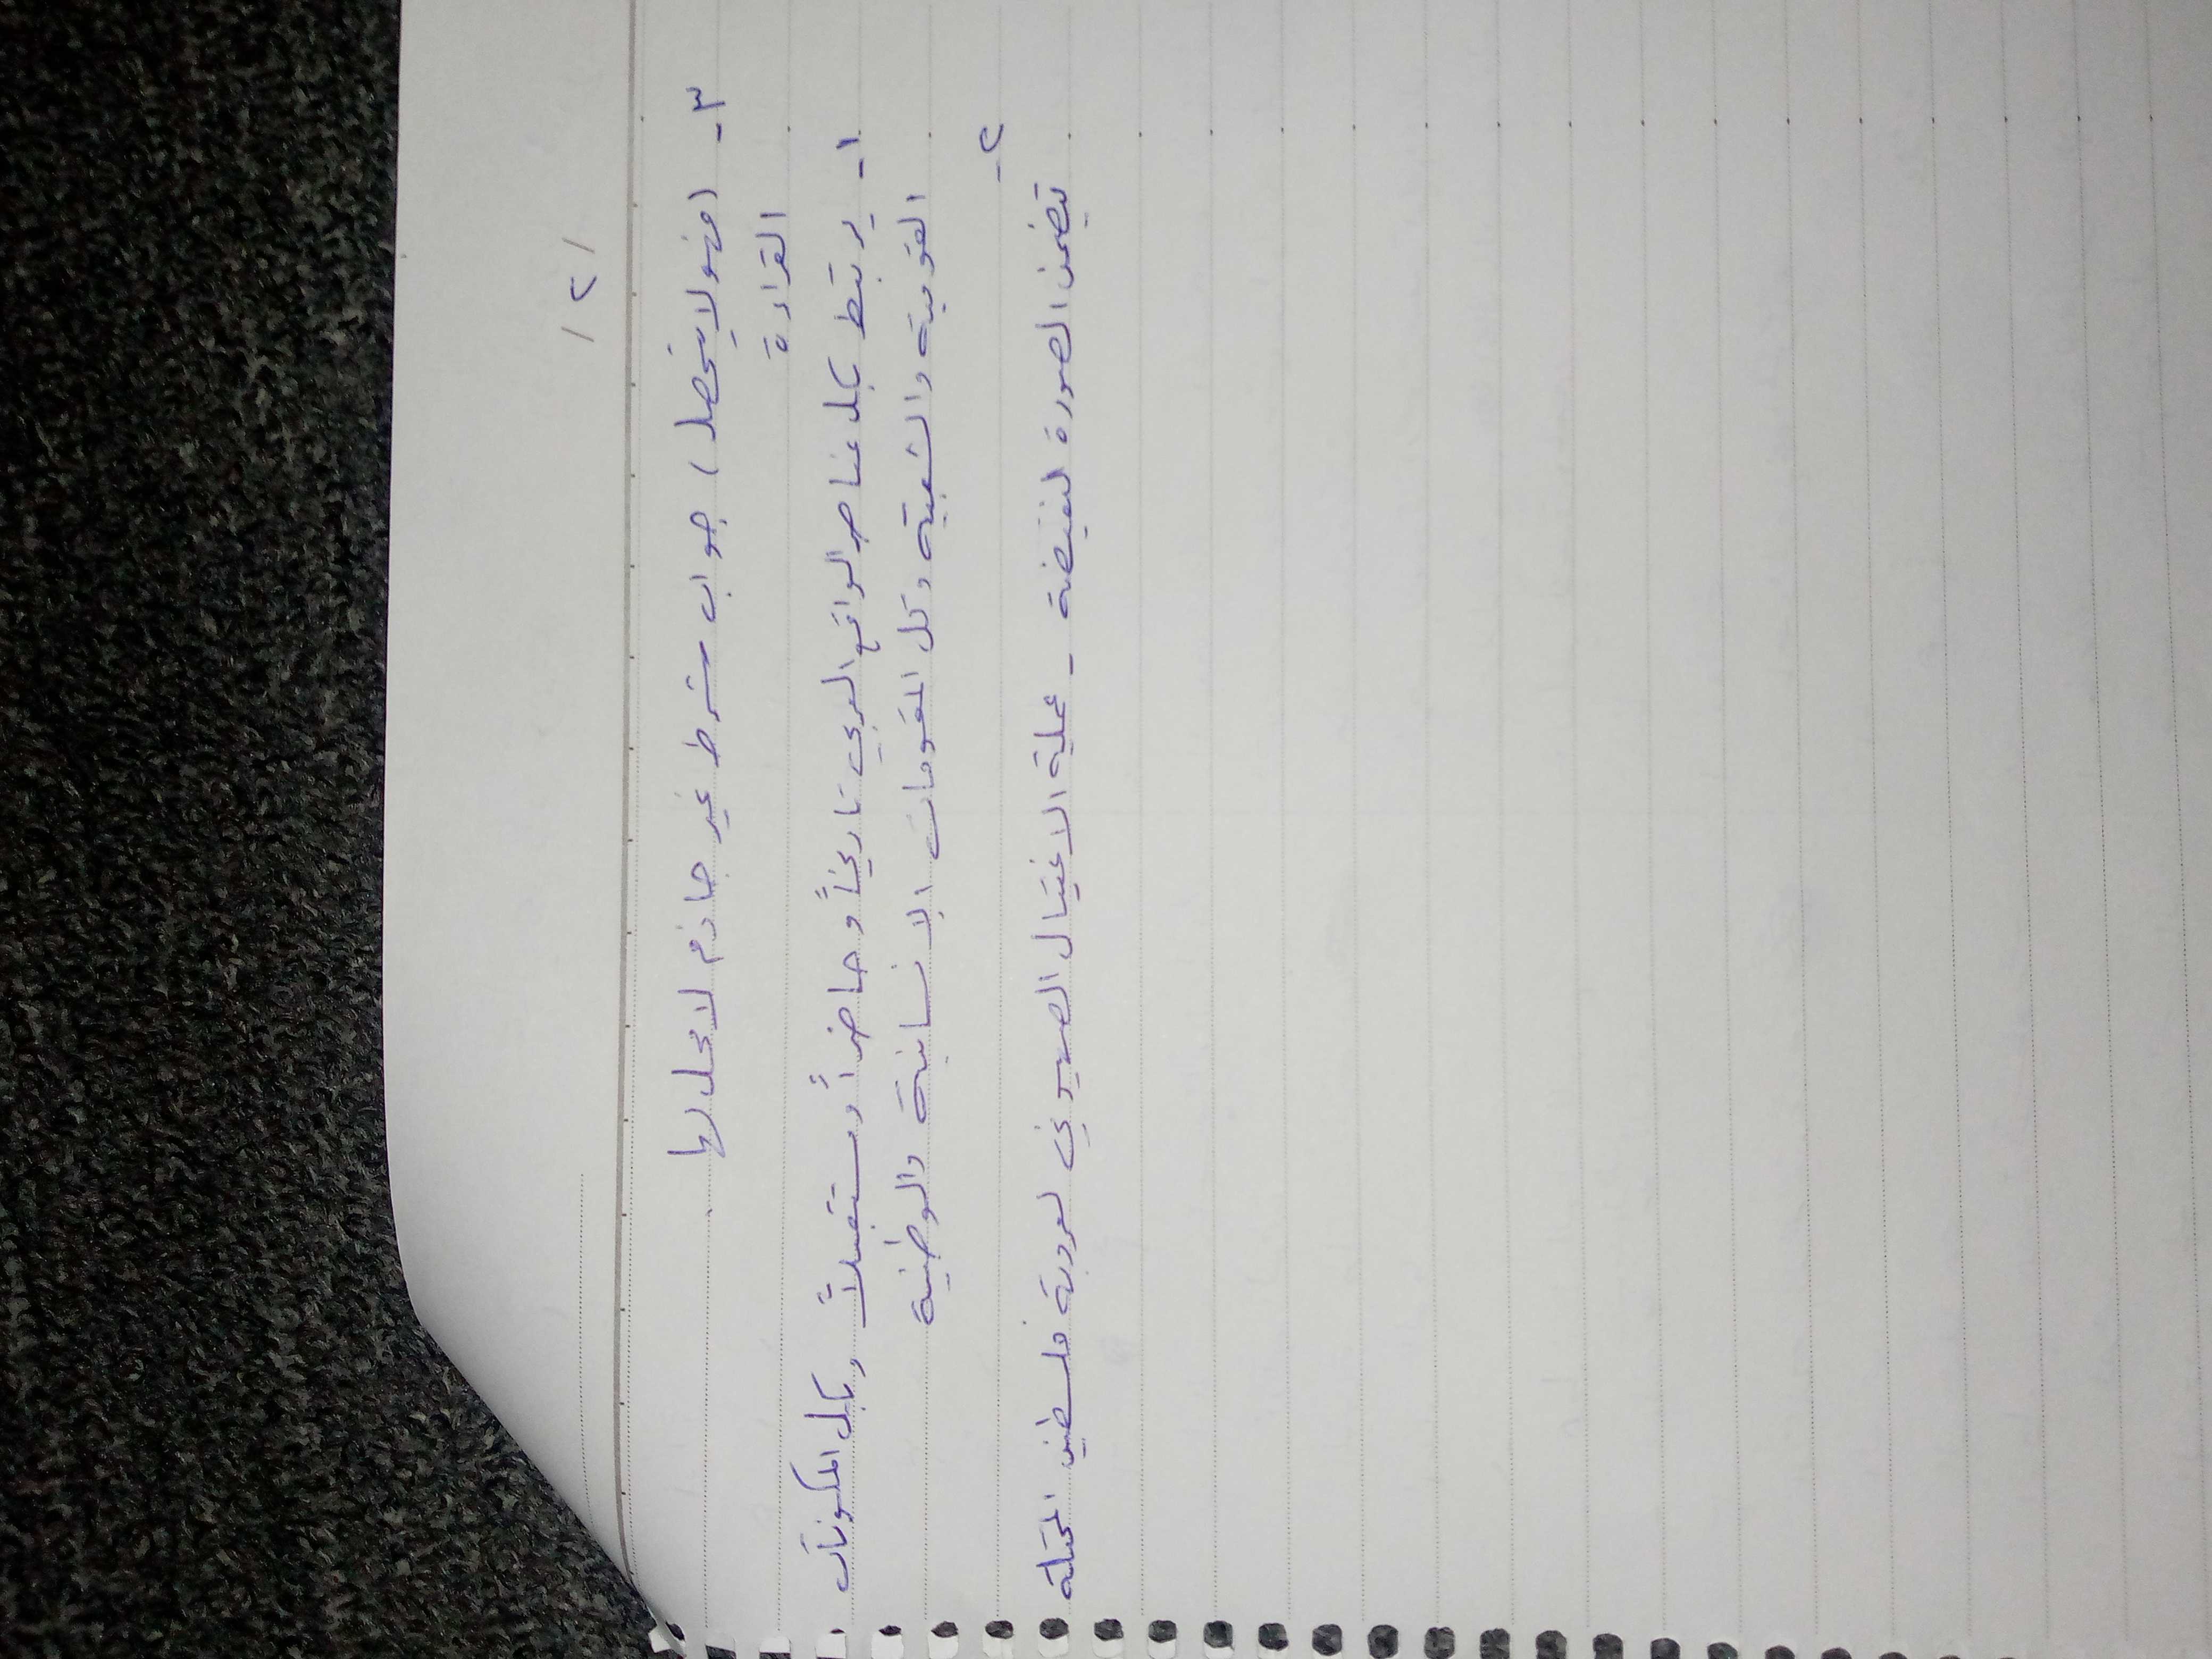 / ٢ /
٣- (فهو لا يتحصل) جواب شرط غير جازم لا محل لها .
القراءة
١- يرتبط بكل عناصر الواقع العربي تاريخاً وحاضراً ومستقبلاً وبكل المكونات
القومية والشعبية وكل المقومات الانسانية والوطنية
٢-
تضمن الصورة لنقيضة - عملية الاغتيال الصهيوني لعروبة فلسطين المحتلة